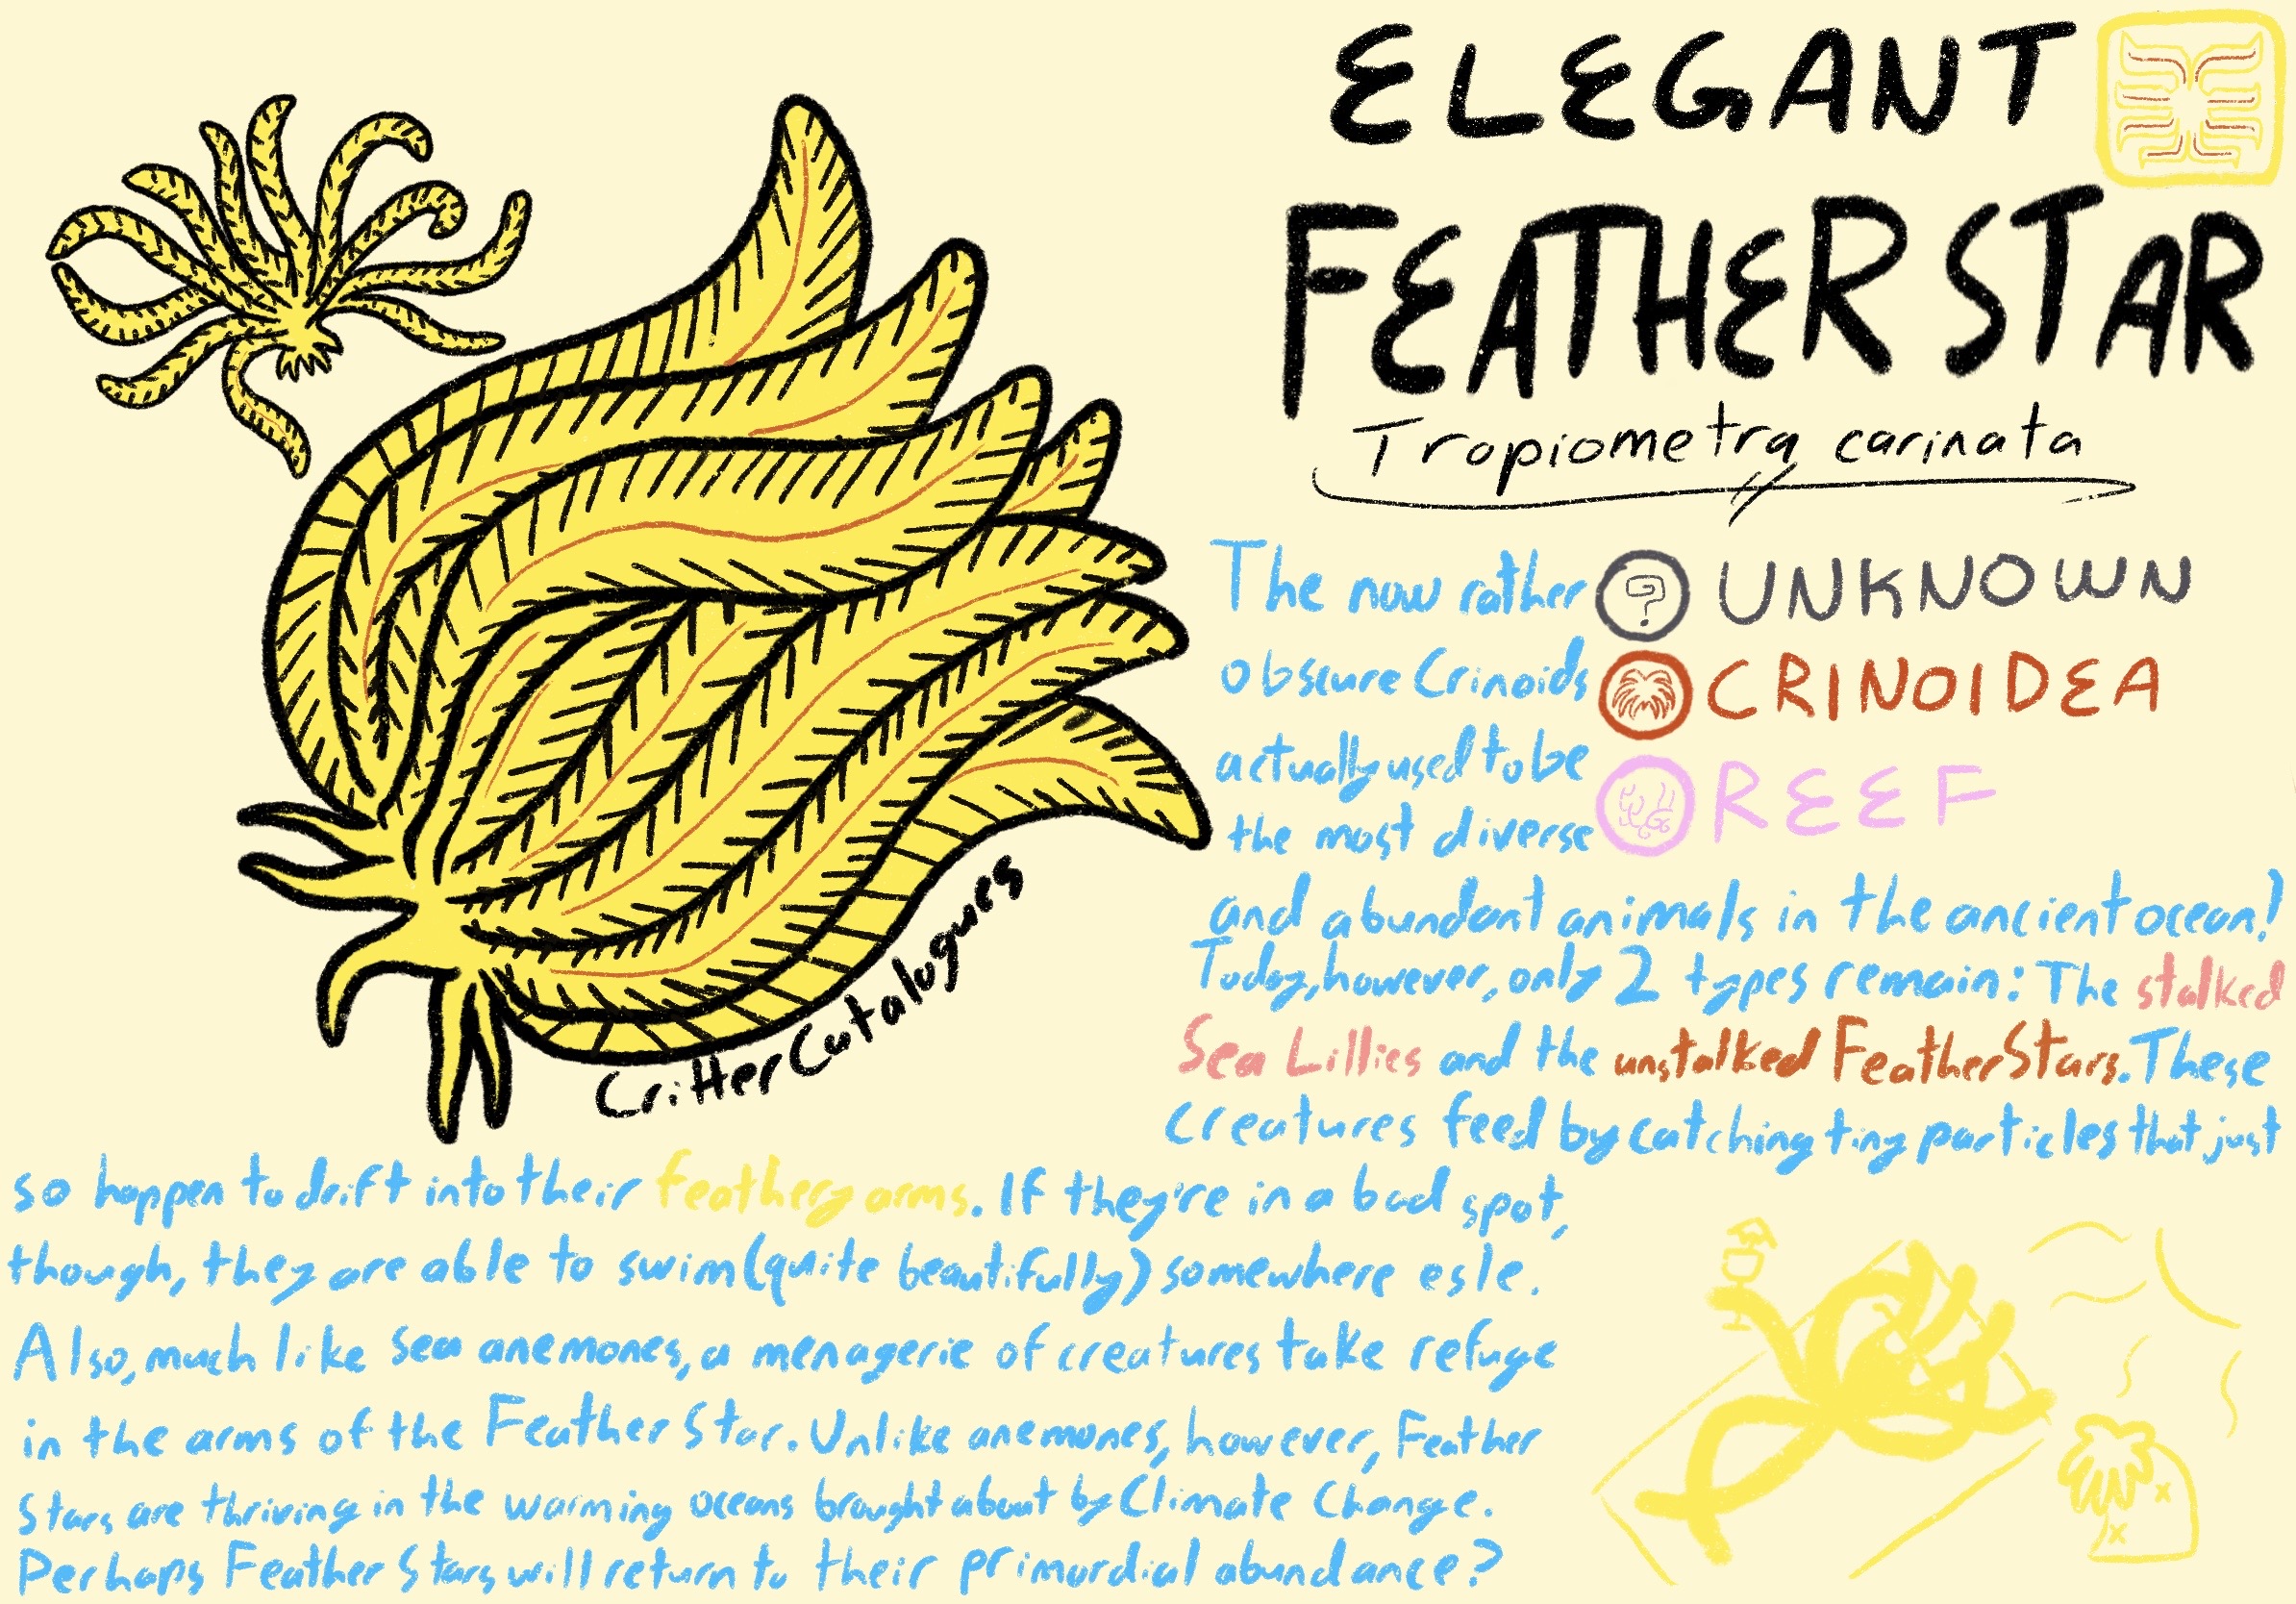 ELEGANT
FEATHER STAR
Tropiometra carinata
The now rather
obscure Crinoids
actually used to be
the most diverse
? UNKNOWN
CRINOIDEA
REEF
and abundant animals in the ancient ocean!
Today, however, only 2 types remain: The stalked
Sea Lillies and the unstalked Feather Stars. These
creatures feed by catching tiny particles that just
so happen to drift into their feathery arms. If they're in a bad spot,
though, they are able to swim (quite beautifully) somewhere esle.
Also, much like sea anemones, a menagerie of creatures take refuge
in the arms of the Feather Star. Unlike anemones, however, Feather
Stars are thriving in the warming oceans brought about by Climate Change.
Perhaps Feather Stars will return to their primordial abundance?
CritterCatalogues